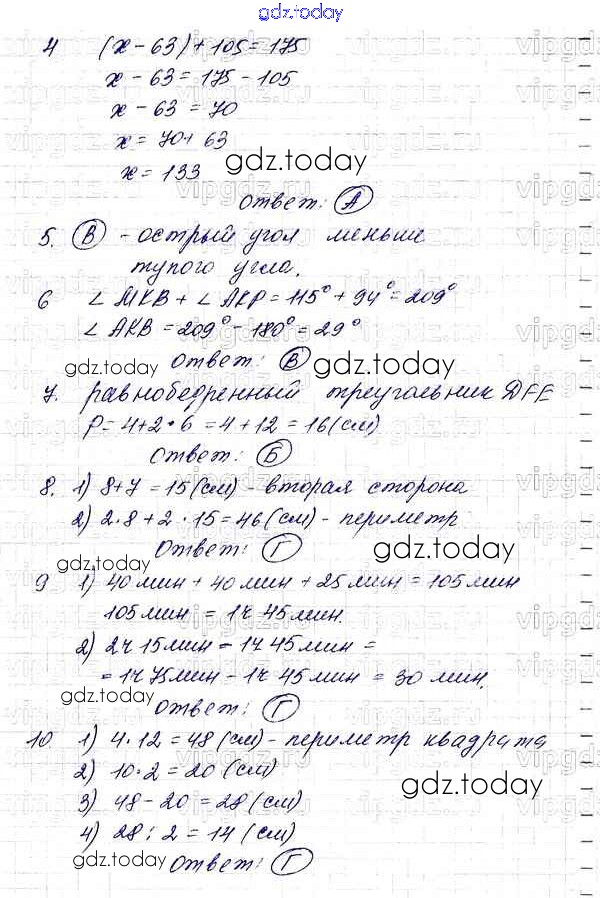 gdz.today
4 (x - 63) + 105 = 175
x - 63 = 175 - 105
x - 63 = 70
x = 70 + 63
x = 133
gdz.today
ответ: А
5. В - острый угол меньше
тупого угла.
6 ∠ МКВ + ∠ АКР = 115° + 94° = 209°
∠ АКВ = 209° - 180° = 29°
gdz.today
ответ: В
gdz.today
7. равнобедренный треугольник DFE
P = 4 + 2 · 6 = 4 + 12 = 16 (см)
Ответ: Б
8. 1) 8 + 7 = 15 (см) - вторая сторона
2) 2 · 8 + 2 · 15 = 46 (см) - периметр
Ответ: Г
gdz.today
gdz.today
9 1) 40 мин + 40 мин + 25 мин = 105 мин
105 мин = 1ч 45 мин.
2) 2ч 15 мин - 1ч 45 мин =
= 1ч 75 мин - 1ч 45 мин = 30 мин.
gdz.today
gdz.today
Ответ: Г
10. 1) 4 · 12 = 48 (см) - периметр квадрата
2) 10 · 2 = 20 (см)
3) 48 - 20 = 28 (см)
4) 28 : 2 = 14 (см)
gdz.today
gdz.today
Ответ: Г